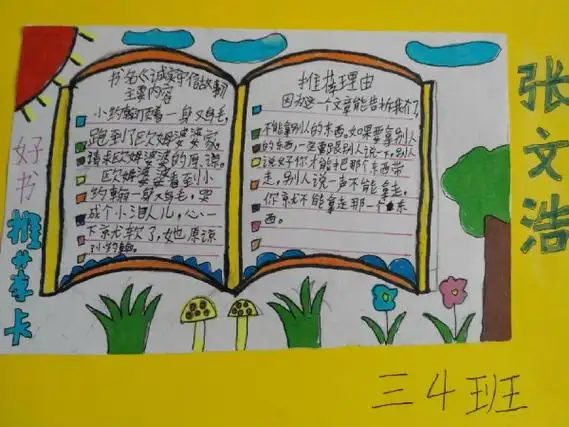 好书推荐卡
书名《诚实守信故事》
主要内容
小约翰顶着一身鸡毛，
跑到了欧姆婆婆家，
请求欧姆婆婆的原谅。
欧姆婆婆看到小
约翰一身鸡毛，哭
成个小泪人儿，心一
下就软了，她原谅
小约翰。
推荐理由
因为这个文章能告诉我们了，
不能拿别人的东西，如果要拿别人
的东西，一定要跟别人说一下，别人
说好你才能把那个东西带
走，别人说一声不能拿走，
你就不能拿走那一个东
西。
张文浩
三4班